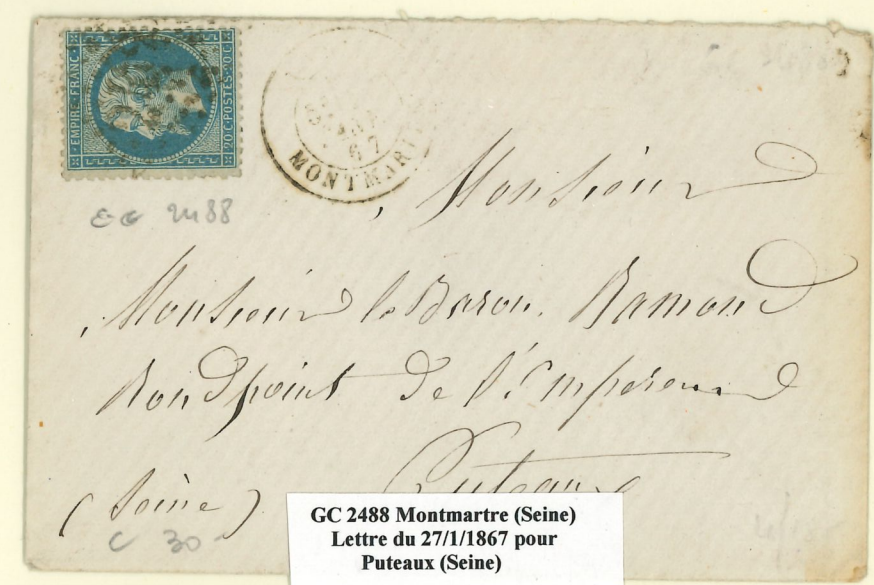 EMPIRE·FRANC·
20·C·POSTES·20·C
67
MONTMAR
GC 2488
Monsieur
Monsieur le Baron Ramond
Rond point de l'Empereur
Puteaux
(Seine)
C 30
GC 2488 Montmartre (Seine)
Lettre du 27/1/1867 pour
Puteaux (Seine)